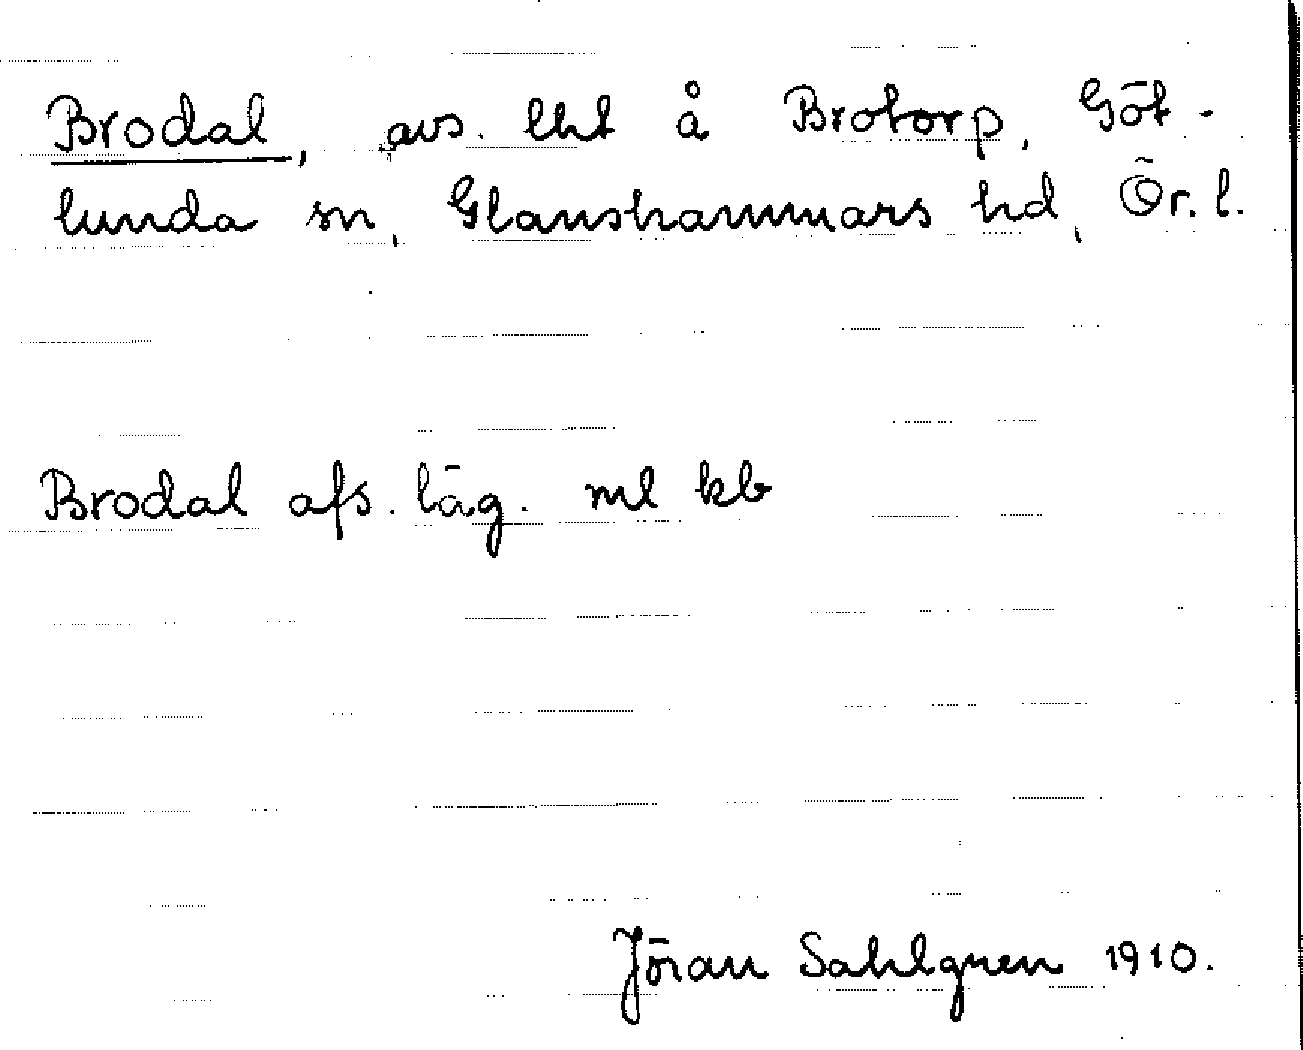 Brodal, avs. lht å Brotorp, Göt-
lunda sn, Glanshammars hd, Ör. l.
Brodal afs. läg. ml kb
Jöran Sahlgren 1910.